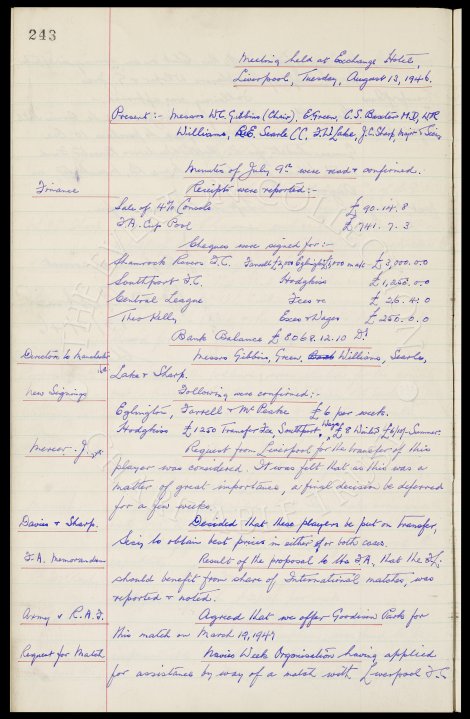 243
Meeting held at Exchange Hotel,
Liverpool, Tuesday, August 13, 1946.
Present :- Messrs W.C. Gibbins (Chair), E. Green, C.S. Baxter M.D., W.R.
Williams, R.E. Searle C.C. T.W. Lake, J.C. Sharp,
Minutes of July 9th were read & confirmed.
Finance Receipts were reported:-
Sale of 4% Consols £ 90. 14. 8
F.A. Cup Pool £ 741. 7. 3
Cheques were signed for :-
Shamrock Rovers F.C. Farrell £ Eglington £ £ 3,000. 0. 0
Southport F.C. Hodgkiss £ 1,250. 0. 0
Central League Fees £ 26. 4. 0
Theo Kelly Exes & Wages £ 250. 0. 0
Bank Balance £ 8068. 12. 10 Dr
Directors to Manchester Messrs Gibbins, Green, Williams, Searle,
Lake & Sharp.
New Signings Following were confirmed:-
Eglington, Farrell & McPeake £6 per week.
Hodgkiss £1250 Transfer Fee, Southport, Wages £8 Winter £6/10/- Summer.
Mercer. J. Request from Liverpool for the transfer of this
player was considered. It was felt that as this was a
matter of great importance, a final decision be deferred
for a few weeks.
Davies & Sharp. Decided that these players be put on transfer,
Secy to obtain best prices in either or both cases.
F.A. Memorandum Result of the proposal to the F.A. that the F.L.
should benefit from share of International matches, was
reported & noted.
Army v R.A.F. Agreed that we offer Goodison Park for
this match on March 19, 1947
Request for Match Navies Week Organisation having applied
for assistance by way of a match with Liverpool F.C.